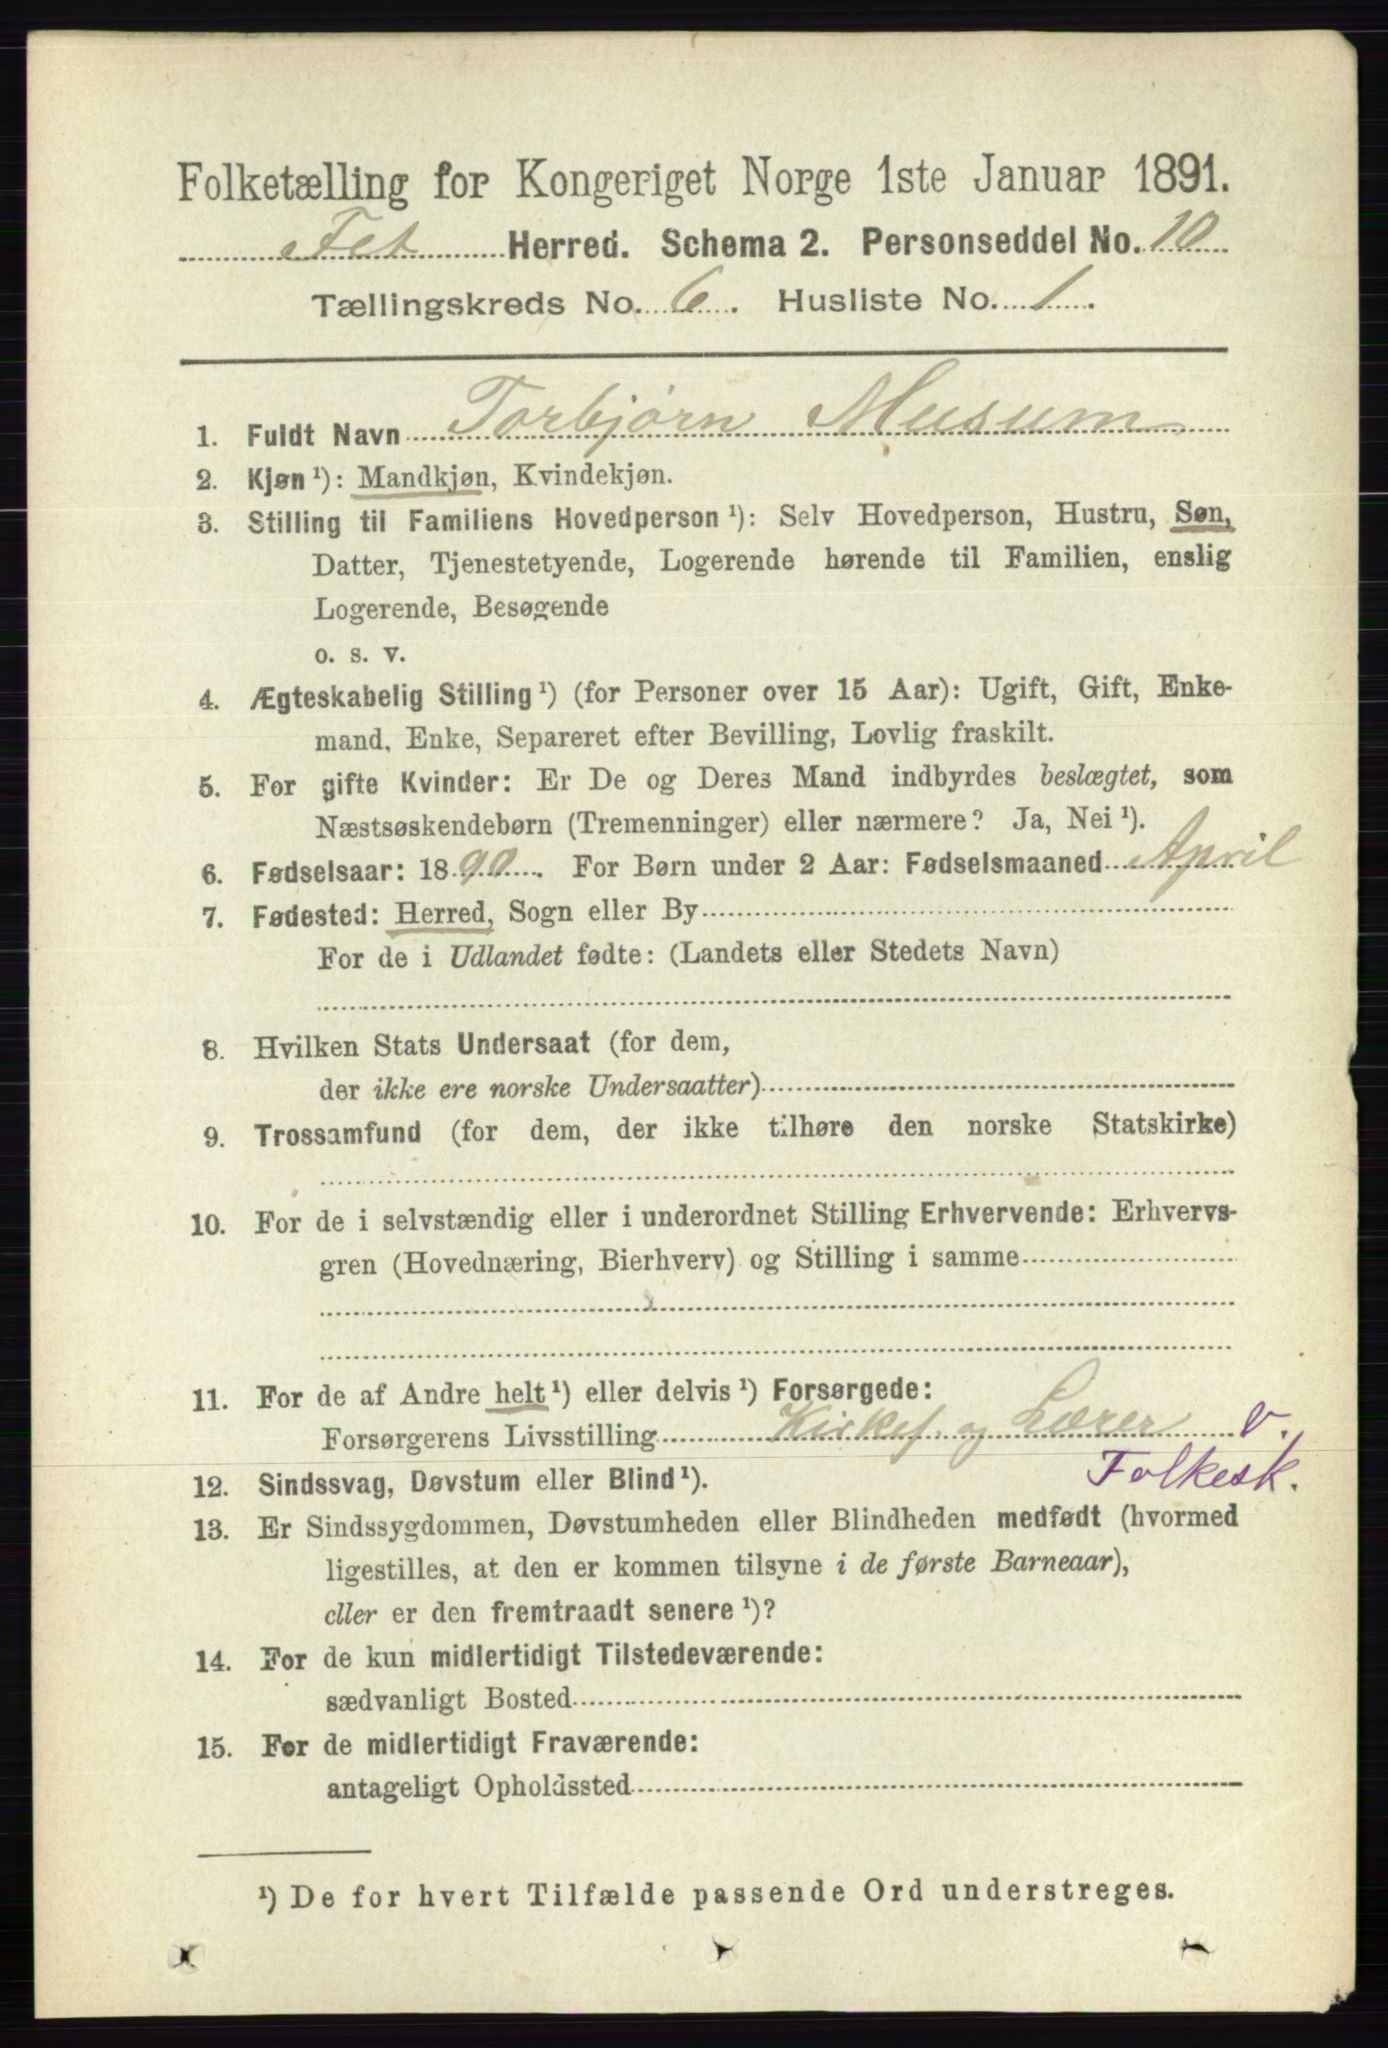 Folketælling for Kongeriget Norge 1ste Januar 1891.
Fet Herred. Schema 2. Personseddel No. 10
Tællingskreds No. 6. Husliste No. 1.
1. Fuldt Navn Torbjørn Musum
2. Kjøn ¹): Mandkjøn, Kvindekjøn.
3. Stilling til Familiens Hovedperson ¹): Selv Hovedperson, Hustru, Søn,
Datter, Tjenestetyende, Logerende hørende til Familien, enslig
Logerende, Besøgende
o. s. v.
4. Ægteskabelig Stilling ¹) (for Personer over 15 Aar): Ugift, Gift, Enke-
mand, Enke, Separeret efter Bevilling, Lovlig fraskilt.
5. For gifte Kvinder: Er De og Deres Mand indbyrdes beslægtet, som
Næstsøskendebørn (Tremenninger) eller nærmere? Ja, Nei ¹).
6. Fødselsaar: 1890. For Børn under 2 Aar: Fødselsmaaned April
7. Fødested: Herred, Sogn eller By
For de i Udlandet fødte: (Landets eller Stedets Navn)
8. Hvilken Stats Undersaat (for dem,
der ikke ere norske Undersaatter)
9. Trossamfund (for dem, der ikke tilhøre den norske Statskirke)
10. For de i selvstændig eller i underordnet Stilling Erhvervende: Erhvervs-
gren (Hovednæring, Bierhverv) og Stilling i samme
11. For de af Andre helt ¹) eller delvis ¹) Forsørgede:
Forsørgerens Livsstilling Kirkes. og Lærer v.
Folkesk.
12. Sindssvag, Døvstum eller Blind ¹).
13. Er Sindssygdommen, Døvstumheden eller Blindheden medfødt (hvormed
ligestilles, at den er kommen tilsyne i de første Barneaar),
eller er den fremtraadt senere ¹)?
14. For de kun midlertidigt Tilstedeværende:
sædvanligt Bosted
15. For de midlertidigt Fraværende:
antageligt Opholdssted
¹) De for hvert Tilfælde passende Ord understreges.